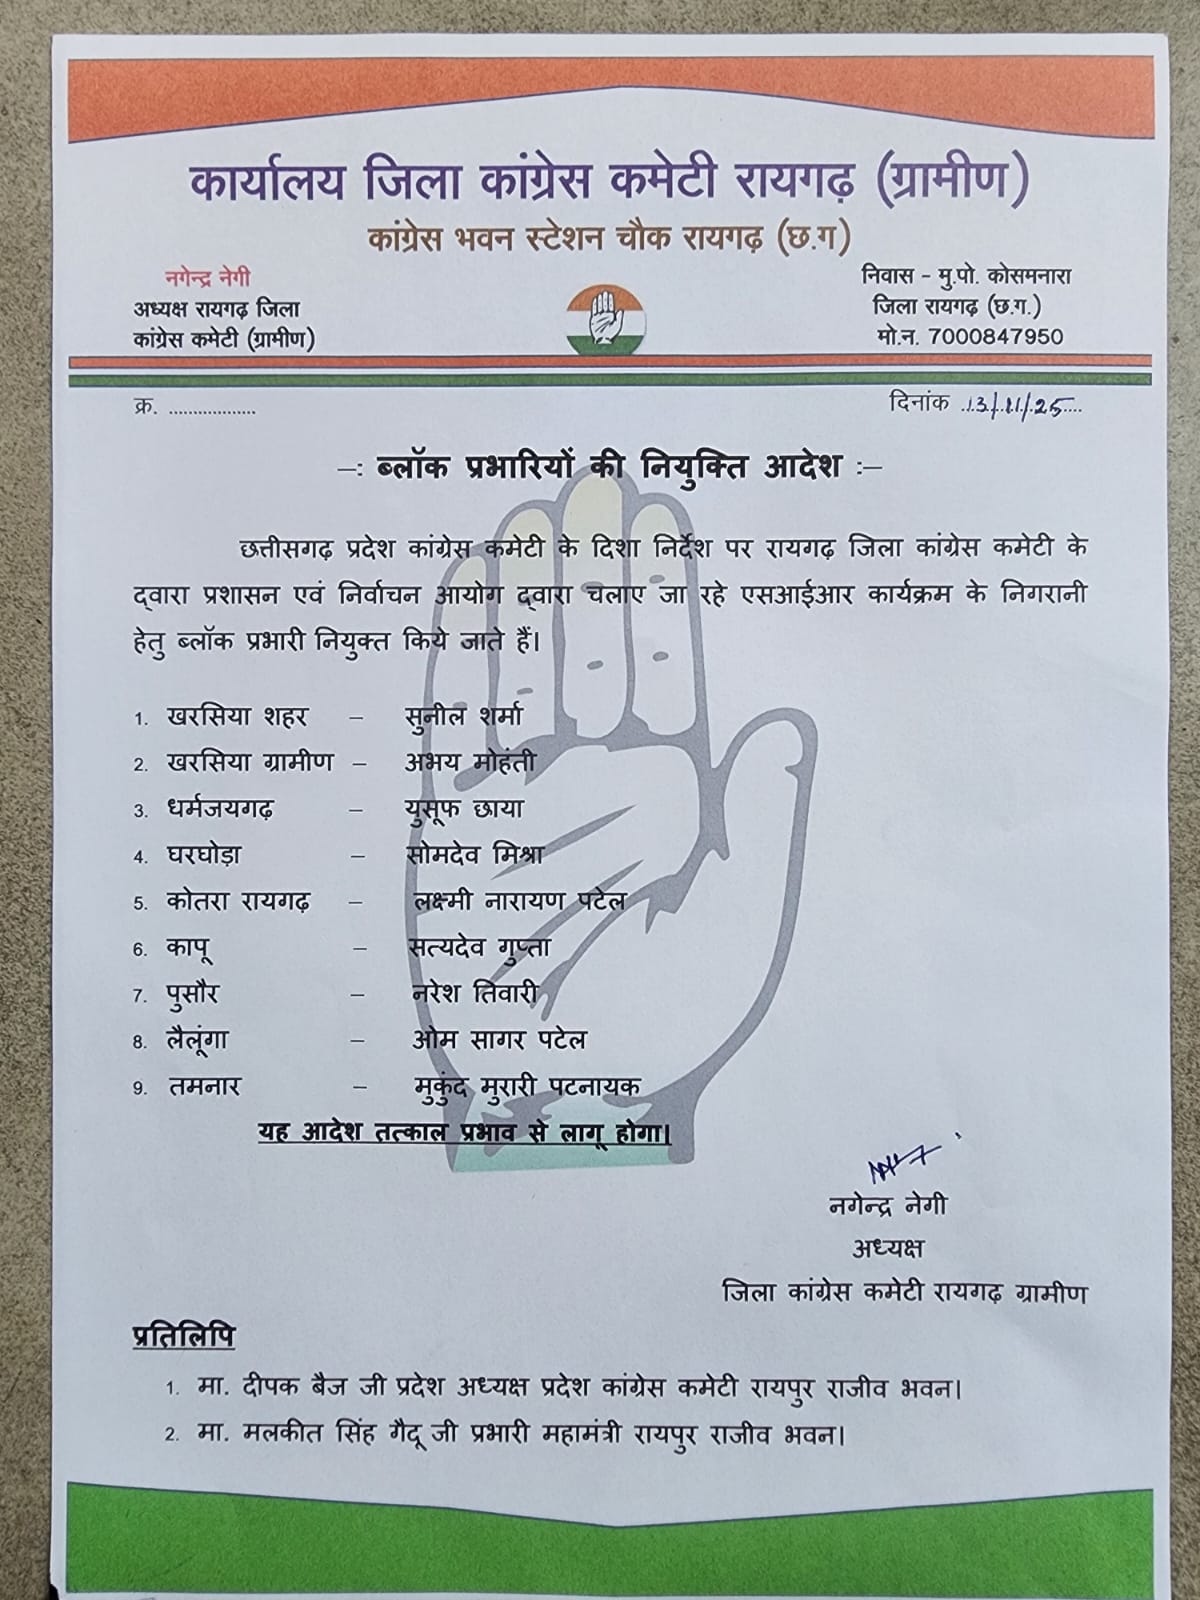 कार्यालय जिला कांग्रेस कमेटी रायगढ़ (ग्रामीण)
कांग्रेस भवन स्टेशन चौक रायगढ़ (छ.ग)
नगेन्द्र नेगी
अध्यक्ष रायगढ़ जिला
कांग्रेस कमेटी (ग्रामीण)
निवास - मु.पो. कोसमनारा
जिला रायगढ़ (छ.ग.)
मो.न. 7000847950
क्र. ..................
दिनांक 13/11/25
–: ब्लॉक प्रभारियों की नियुक्ति आदेश :–
छत्तीसगढ़ प्रदेश कांग्रेस कमेटी के दिशा निर्देश पर रायगढ़ जिला कांग्रेस कमेटी के
द्वारा प्रशासन एवं निर्वाचन आयोग द्वारा चलाए जा रहे एसआईआर कार्यक्रम के निगरानी
हेतु ब्लॉक प्रभारी नियुक्त किये जाते हैं।
1. खरसिया शहर – सुनील शर्मा
2. खरसिया ग्रामीण – अभय मोहंती
3. धर्मजयगढ़ – युसूफ छाया
4. घरघोड़ा – सोमदेव मिश्रा
5. कोतरा रायगढ़ – लक्ष्मी नारायण पटेल
6. कापू – सत्यदेव गुप्ता
7. पुसौर – नरेश तिवारी
8. लैलूंगा – ओम सागर पटेल
9. तमनार – मुकुंद मुरारी पटनायक
यह आदेश तत्काल प्रभाव से लागू होगा।
नगेन्द्र नेगी
अध्यक्ष
जिला कांग्रेस कमेटी रायगढ़ ग्रामीण
प्रतिलिपि
1. मा. दीपक बैज जी प्रदेश अध्यक्ष प्रदेश कांग्रेस कमेटी रायपुर राजीव भवन।
2. मा. मलकीत सिंह गैदू जी प्रभारी महामंत्री रायपुर राजीव भवन।